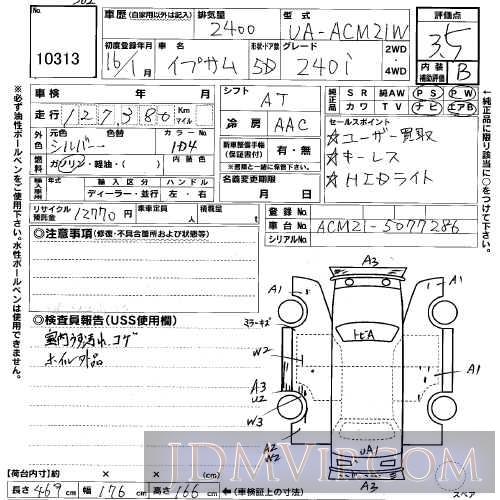 10313
車歴 (自家用以外は記入) 排気量 2400 型式 UA-ACM21W
評価点 3.5
初度登録年月 16/1月 車名 イプサム 形状・ドア数 5D グレード 240i 2WD・4WD
内装補助評価 B
車検 年 月
シフト AT
純正品 SR 純AW PS PW
カワ TV ナビ エアB
走行 127380 Km マイル
冷房 AAC
セールスポイント
☆ユーザー買取
☆キーレス
☆HIDライト
外色 元色 シルバー 色替 カラーNo. 1D4
燃料 ガソリン・軽油・( ) 内装色
新車整備手帳(保証書付) 有・無
輸入車用 年式 輸入区分 ハンドル
ディーラー・並行 左・右
名義変更期限 月 日
リサイクル預託金 12770円 乗車定員 人 積載量 t
登録No.
車台No. ACM21-5077286
シリアルNo.
◎注意事項 (修復・不具合箇所および状態等)
◎検査員報告 (USS使用欄)
室内うす汚れ、コゲ
ホイル外品
A3
A1
A1
ミラーキズ
トビA
W2
A3
U2
A1
W3
A2
W2
UA1
A3
スペア
【荷台内寸】約 × × (cm)
長さ 469cm 幅 176cm 高さ 166cm ←(車検証上の寸法)
※必ず油性ボールペンをご使用下さい。水性ボールペンは使用できません。
←純正品に限り該当に○をつけて下さい。
JDMVIP.COM